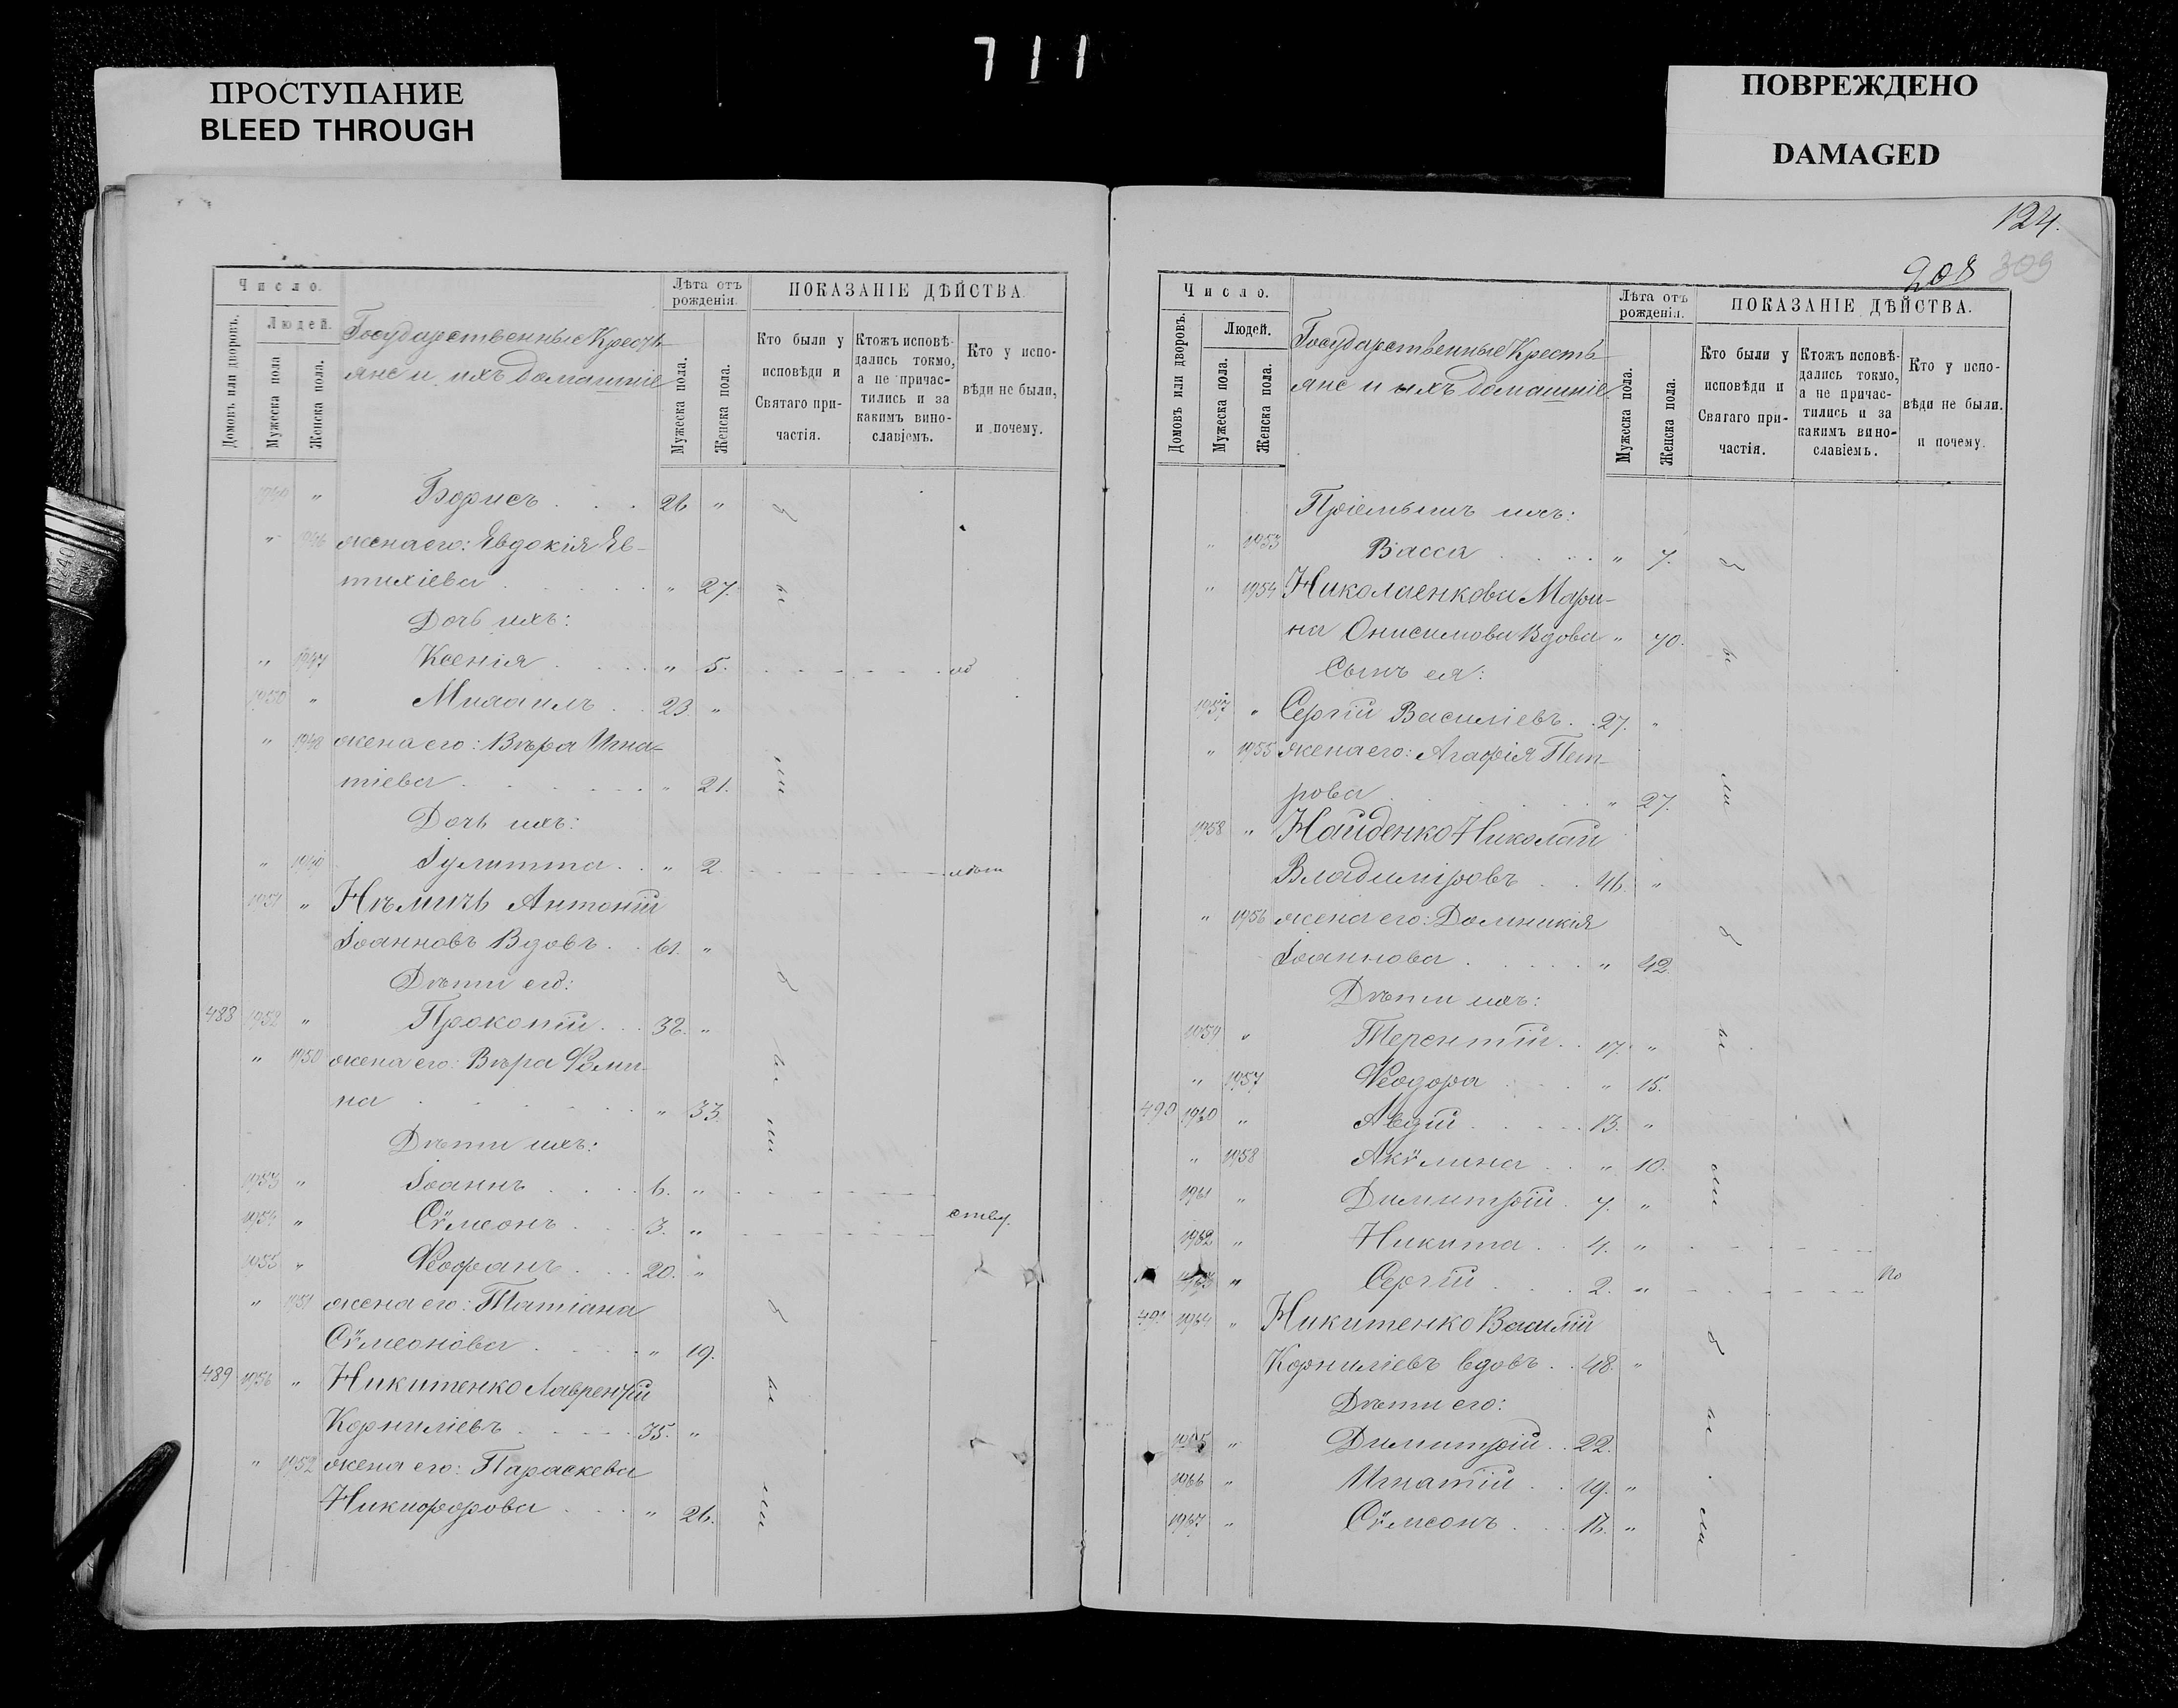 711
ПРОСТУПАНИЕ
BLEED THROUGH
ПОВРЕЖДЕНО
DAMAGED
Число.
Людей.
Домовъ или дворовъ.
Мужеска пола
Женска пола.
Государственные Кресть-
яне и ихъ домашніе
Лѣта отъ рожденія.
Мужеска пола.
Женска пола.
ПОКАЗАНІЕ ДѢЙСТВА.
Кто были у исповѣди и Святаго причастія.
Ктожъ исповѣдались токмо, а не причастились и за какимъ винославіемъ.
Кто у исповѣди не были, и почему.
1949 " Борисъ . . . 26 " б
" 1946 жена его: Евдокія Ев-
тихіева . . . " 27. ы
Дочь ихъ:
" 1947 Ксенія . . . " 5.
1950 " Михаилъ . . 23. "
" 1948 жена его: Вѣра Игна-
тіева . . . " 21. ли
Дочь ихъ:
" 1949 Іулитта . . " 2.
1951 " Нѣмичъ Антоній
Іоанновъ Вдовъ . . 61. "
Дѣти его: б
488 1952 " Прокопій . . 32. "
" 1950 жена его: Вѣра Ѳоми-
на . . . " 33. ы
Дѣти ихъ: ли
1953 " Іоаннъ . . . 6. "
1954 " Сѵмеонъ . . . 3. "
1955 " Ѳеофанъ . . . 20. "
" 1951 жена его: Татіана б
Сѵмеонова . . . " 19.
489 1956 " Никитенко Лаврентій ы
Корниліевъ . . . 35. "
" 1952 жена его: Параскева
Никифорова . . . " 26. ли
124.
208 309
Число.
Людей.
Домовъ или дворовъ.
Мужеска пола.
Женска пола.
Государственные Кресть-
яне и ихъ домашніе
Лѣта отъ рожденія.
Мужеска пола.
Женска пола.
ПОКАЗАНІЕ ДѢЙСТВА.
Кто были у исповѣди и Святаго причастія.
Ктожъ исповѣдались токмо, а не причастились и за какимъ винославіемъ.
Кто у исповѣди не были. и почему.
Пріемышъ ихъ:
" 1953 Васса . . . " 7. б
" 1954 Николаенкова Мари-
на Онисимова Вдова " 70. ы
Сынъ ея:
1957 " Сергій Василіевъ . . 27. "
" 1955 жена его: Агафія Пет-
рова . . . " 27. ли
1958 " Найденко Николай
Владиміровъ . . 46. "
" 1956 жена его: Домникія б
Іоаннова . . . " 42.
Дѣти ихъ:
1959 " Терентій . . 17. " ы
" 1957 Ѳеодора . . . " 15.
490 1960 " Авдій . . . 13. "
" 1958 Акѵлина . . " 10.
1961 " Димитрій . 7. " ли
1962 " Никита . . 4. "
1963 " Сергій . . . 2. " по
491 1964 " Никитенко Василій
Корниліевъ вдовъ . . 48. " б
Дѣти его:
1965 " Димитрій . . 22. ы
1966 " Игнатій . . 19. "
1967 " Сѵмеонъ . . 16. " ли